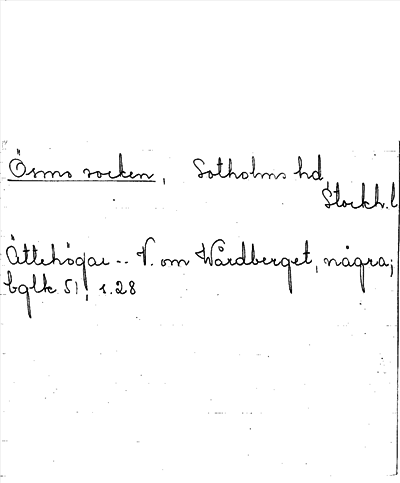 Ösmo socken, Sotholms hd,
Stockh. l
Ättehögar -- V. om Wårdberget, några;
bglk 51, 1.28